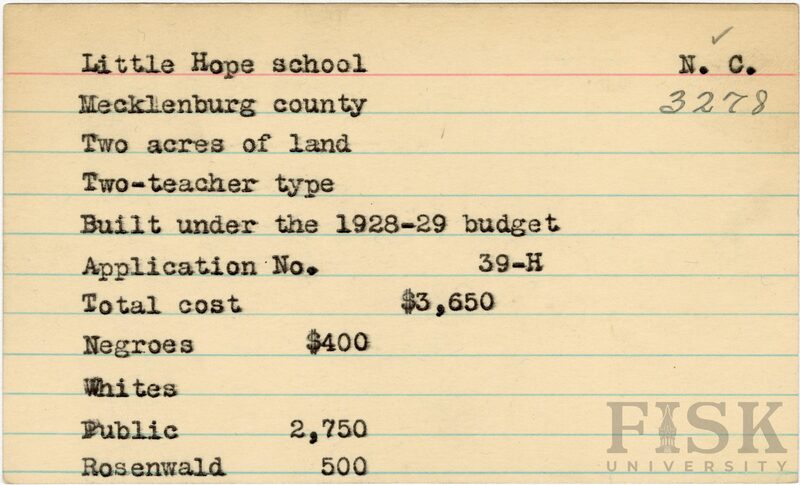 Little Hope school N. C.
Mecklenburg county 3278
Two acres of land
Two-teacher type
Built under the 1928-29 budget
Application No. 39-H
Total cost $3,650
Negroes $400
Whites
Public 2,750
Rosenwald 500
FISK
UNIVERSITY